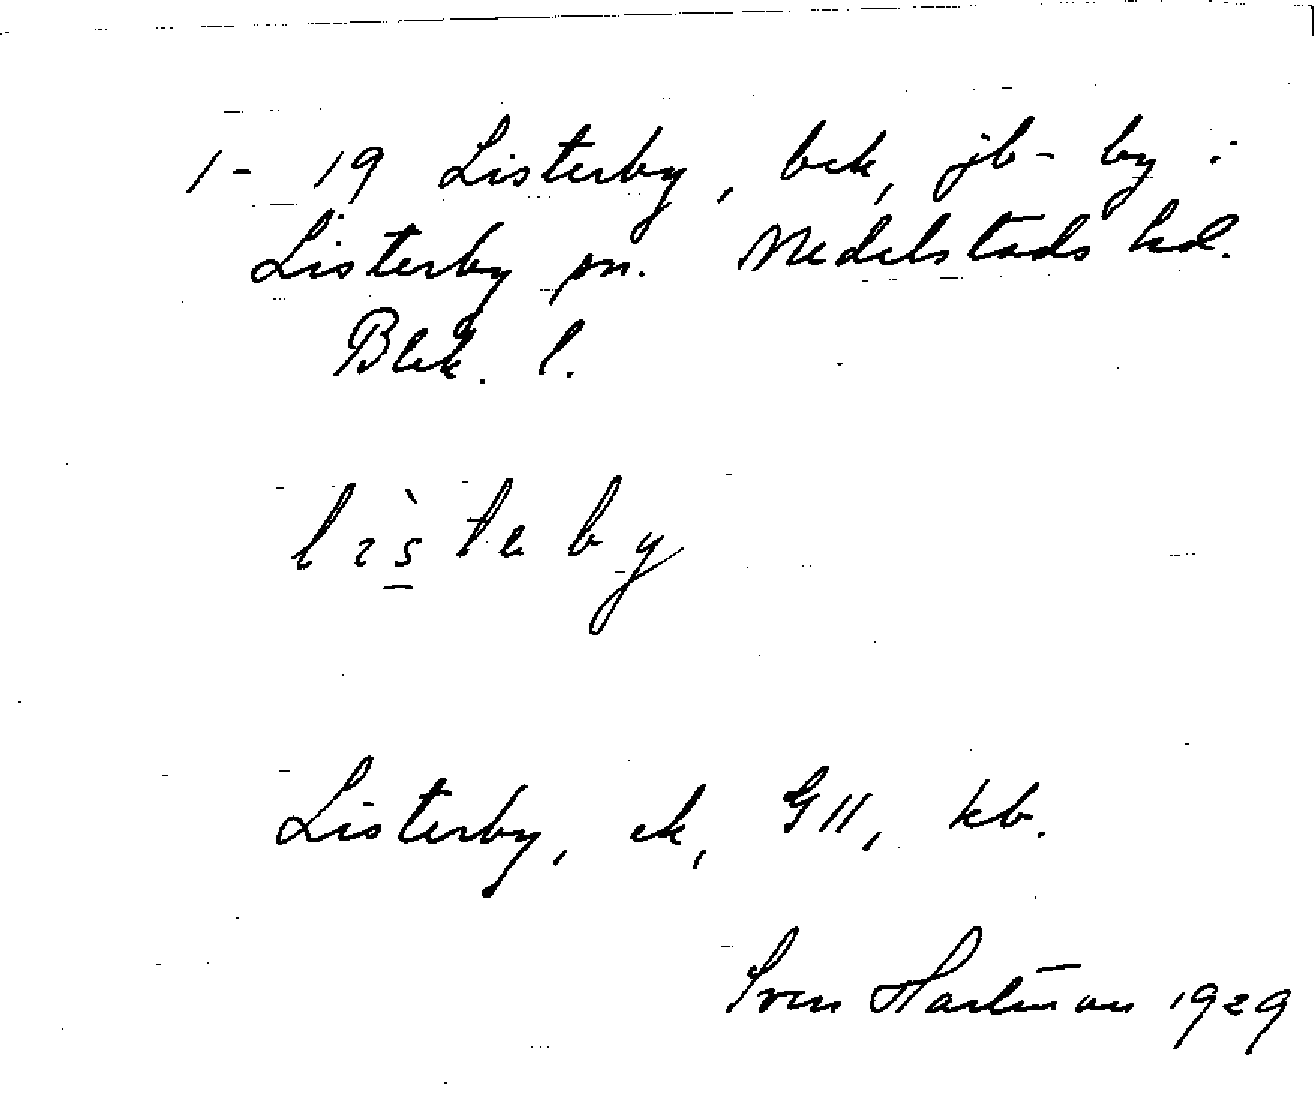 1-19 Listerby, bek, jb-by i
Listerby sn. Medelstads hd.
Blek. l.
lìsteby
Listerby, ek, GII, kb.
Sven Hartman 1929